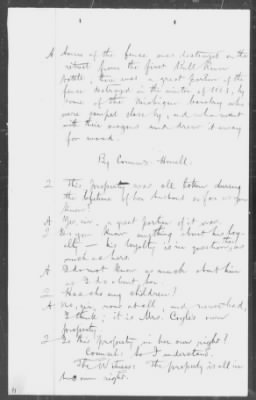 A. Some of the fence was destroyed on the
retreat from the first Bull Run
battle, there was a great portion of the
fence destroyed in the winter of 1863, by
some of the Michigan cavalry who
were camped close by, and who went
with their wagons and drew it away
for wood.
By Commr. Howell.
Q This property was all taken during
the lifetime of her husband so far as you
know?
A Yes, sir, a great portion of it was.
Q Do you know anything about his loy-
alty — his loyalty is in question, as
much as hers.
A I do not know as much about him
as I do about her.
Q Has she any children?
A No, sir, none at all and never had,
I think; it is Mrs. own
property.
Q Is this property in her own right?
Counsel: So I understand.
The Witness: The property is all in
her own right.